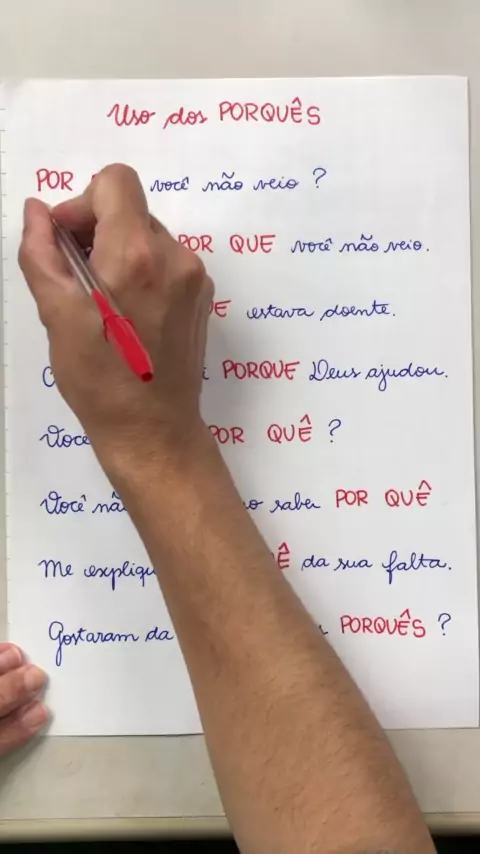 Uso dos PORQUÊS
POR você não veio ?
POR QUE você não veio.
estava doente.
PORQUE Deus ajudou.
POR QUÊ ?
Você saber POR QUÊ
Me da sua falta.
Gostaram da PORQUÊS ?